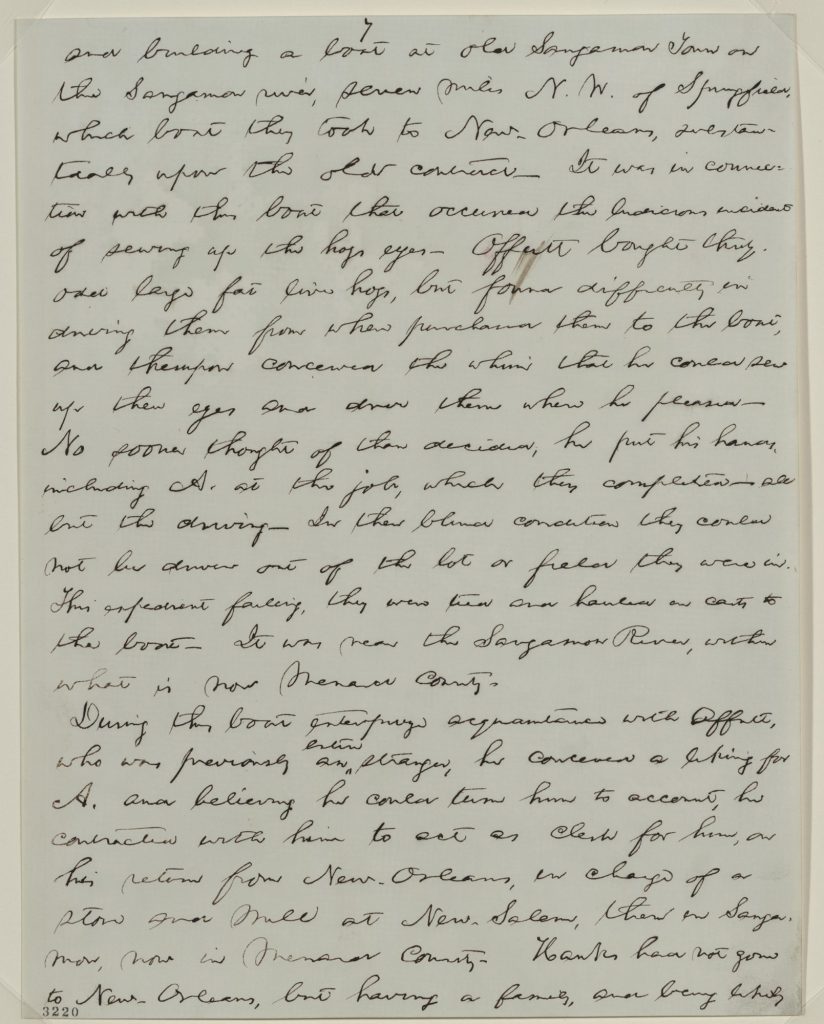 7
and building a boat at old Sangamon Town on
the Sangamon river, seven miles N. W. of Springfield,
which boat they took to New-Orleans, substan-
tially upon the old contract— It was in connec-
tion with this boat that occurred the ludicrous incident
of sewing up the hogs eyes— Offutt bought thirty-
odd large fat live hogs, but found difficulty in
driving them from where purchased them to the boat,
and thereupon conceived the whim that he could sew
up their eyes and drive them where he pleased—
No sooner thought of than decided, he put his hands,
including A. at the job, which they completed—all
but the driving— In their blind condition they could
not be driven out of the lot or field they were in.
This expedient failing, they were tied and hauled on carts to
the boat— It was near the Sangamon River, within
what is now Menard County.
During this boat enterprize acquaintance with Offutt,
who was previously an entire stranger, he conceived a liking for
A. and believing he could turn him to account, he
contracted with him to act as clerk for him, on
his return from New-Orleans, in charge of a
store and Mill at New-Salem, then in Sanga-
mon, now in Menard County— Hanks had not gone
to New-Orleans, but having a family, and being likely
3220